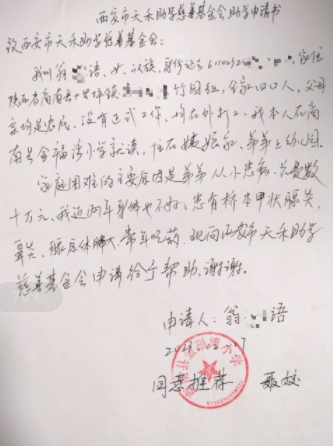 西安市天禾助学慈善基金会助学申请书
致西安市天禾助学慈善基金会:
我叫翁 语,女,汉族,身份证号 家住
陕西省商南县十里坪镇 竹园组,全家四口人,父母
亲均是农民,没有正式工作,均在外打工,我本人在商
南县金福湾小学就读,住在姨娘家,弟弟上幼儿园。
家庭困难的主要原因是弟弟从小患病,花费数
十万元,我近两年身体也不好,患有桥本甲状腺炎、
鼻炎、腺样体肥大,常年吃药,现向西安市天禾助学
慈善基金会申请给予帮助,谢谢。
申请人:翁 语
同意推荐